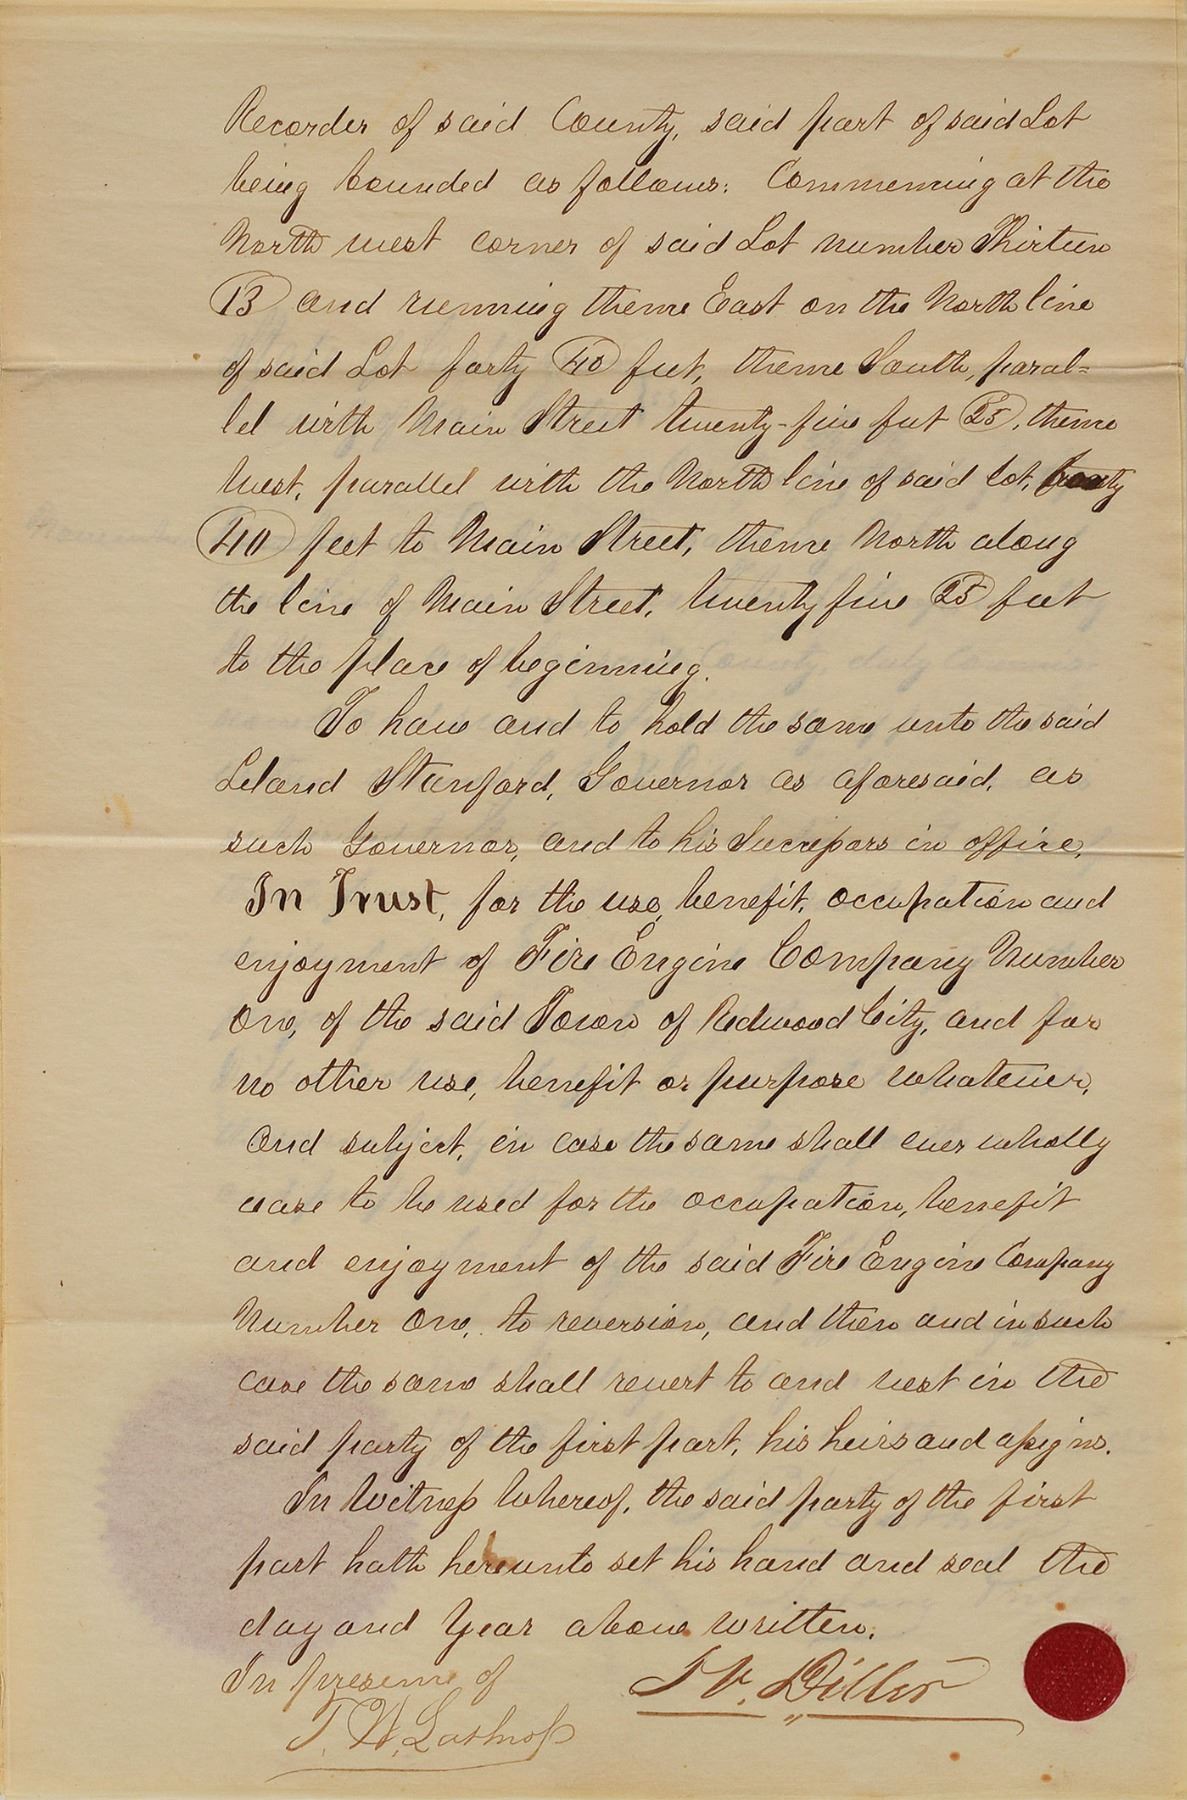 Recorder of said County, said part of said Lot
being bounded as follows: Commencing at the
North west corner of said Lot number Thirteen
13 and running thence East on the North line
of said Lot forty 40 feet, thence South, paral=
lel with Main Street twenty-five feet 25, thence
West, parallel with the North line of said lot, forty
40 feet to Main Street, thence North along
the line of Main Street, twenty five 25 feet
to the place of beginning.
To have and to hold the same unto the said
Leland Stanford, Governor as aforesaid, as
such Governor, and to his Successors in office,
In Trust, for the use, benefit, occupation and
enjoyment of Fire Engine Company Number
One, of the said Town of Redwood City, and for
no other use, benefit or purpose whatever,
And subject, in case the same shall ever wholly
cease to be used for the occupation, benefit
and enjoyment of the said Fire Engine Company
Number One, to reversion, and then and in such
case the same shall revert to and vest in the
said party of the first part, his heirs and assigns.
In Witness Whereof, the said party of the first
part hath hereunto set his hand and seal the
day and Year above written.
In presence of
J V. Diller
T. W. Lathrop